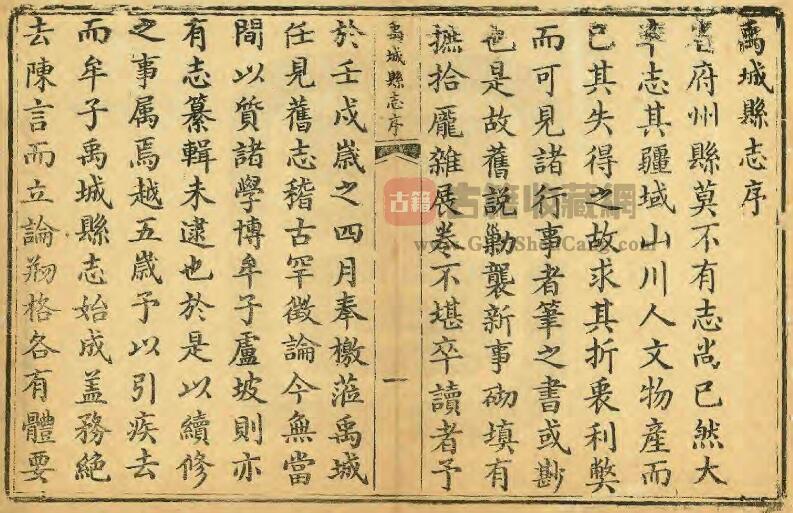 禹城縣志序
省府州縣莫不有志尚已然大
率志其疆域山川人文物産而
已其失得之故求其折衷利弊
而可見諸行事者筆之書或尠
也是故舊說勦襲新事砌填有
摭拾龐雜展卷不堪卒讀者予
禹城縣志序
一
於壬戌嵗之四月奉檄蒞禹城
任見舊志稽古罕徵論今無當
間以質諸學博牟子盧坡則亦
有志纂輯未逮也於是以續修
之事属焉越五嵗予以引疾去
而牟子禹城縣志始成盖務絶
去陳言而立論剏格各有體要
古籍
古籍收藏網